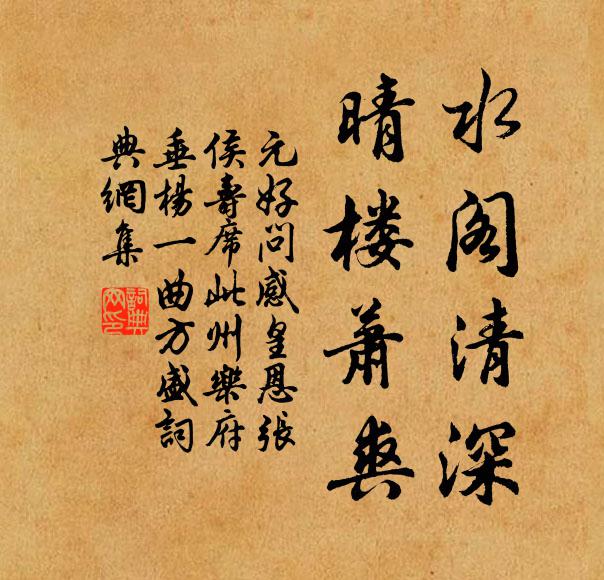 水阁清深
晴楼萧爽
元好问感皇恩张
侯寿席此州乐府
垂杨一曲方盛词
典网集
词典网印